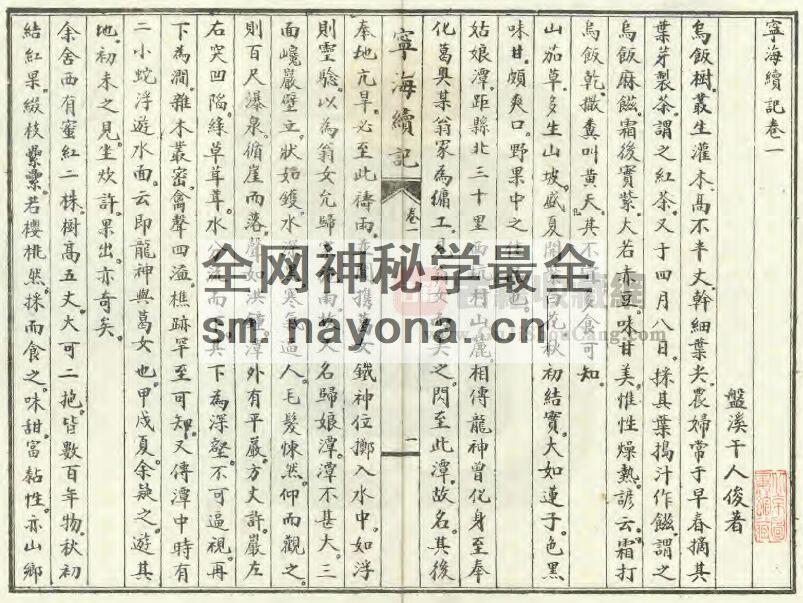 寧海續記卷一
盤溪干人俊著
烏飯樹叢生灌木高不半丈幹細葉尖農婦常于早春摘其
葉芽製茶謂之紅茶又于四月八日採其葉搗汁作餈謂之
烏飯麻餈霜後實紫大若赤豆味甘美惟性燥熱諺云霜打
烏飯乾撒糞叫黃天其不
食可知
山茄草多生山坡盛夏開
白花秋初結實大如蓮子色黑
味甘頗爽口野果中之
也
姑娘潭距縣北三十里
村山麓相傳龍神曾化身至奉
化葛嶴某翁家為傭工
之閃至此潭故名其後
寧海續記
卷一
一
奉地亢旱必至此禱雨
攜葛女鐵神位擲入水中如浮
則靈驗以為翁女允歸
雨
人名歸娘潭潭不甚大三
面巉巖壁立狀如鑊水深
寒氣逼人毛髮悚然仰而觀之
則百尺瀑泉循崖而落聲如洪鐘潭外有平巖方丈許巖左
右突凹陷綠草茸茸水分流而下其下為深壑不可逼視再
下為澗雜木叢密禽聲四溢樵跡罕至可知又傳潭中時有
二小蛇浮遊水面云即龍神與葛女也甲戌夏余
之遊其
地初未之見坐炊許果出亦奇矣
余舍西有蜜紅二株樹高五丈大可二抱皆數百年物秋初
結紅果綴枝纍纍若櫻桃然採而食之味甜富黏性亦山鄉
全网神秘学最全
sm.nayona.cn